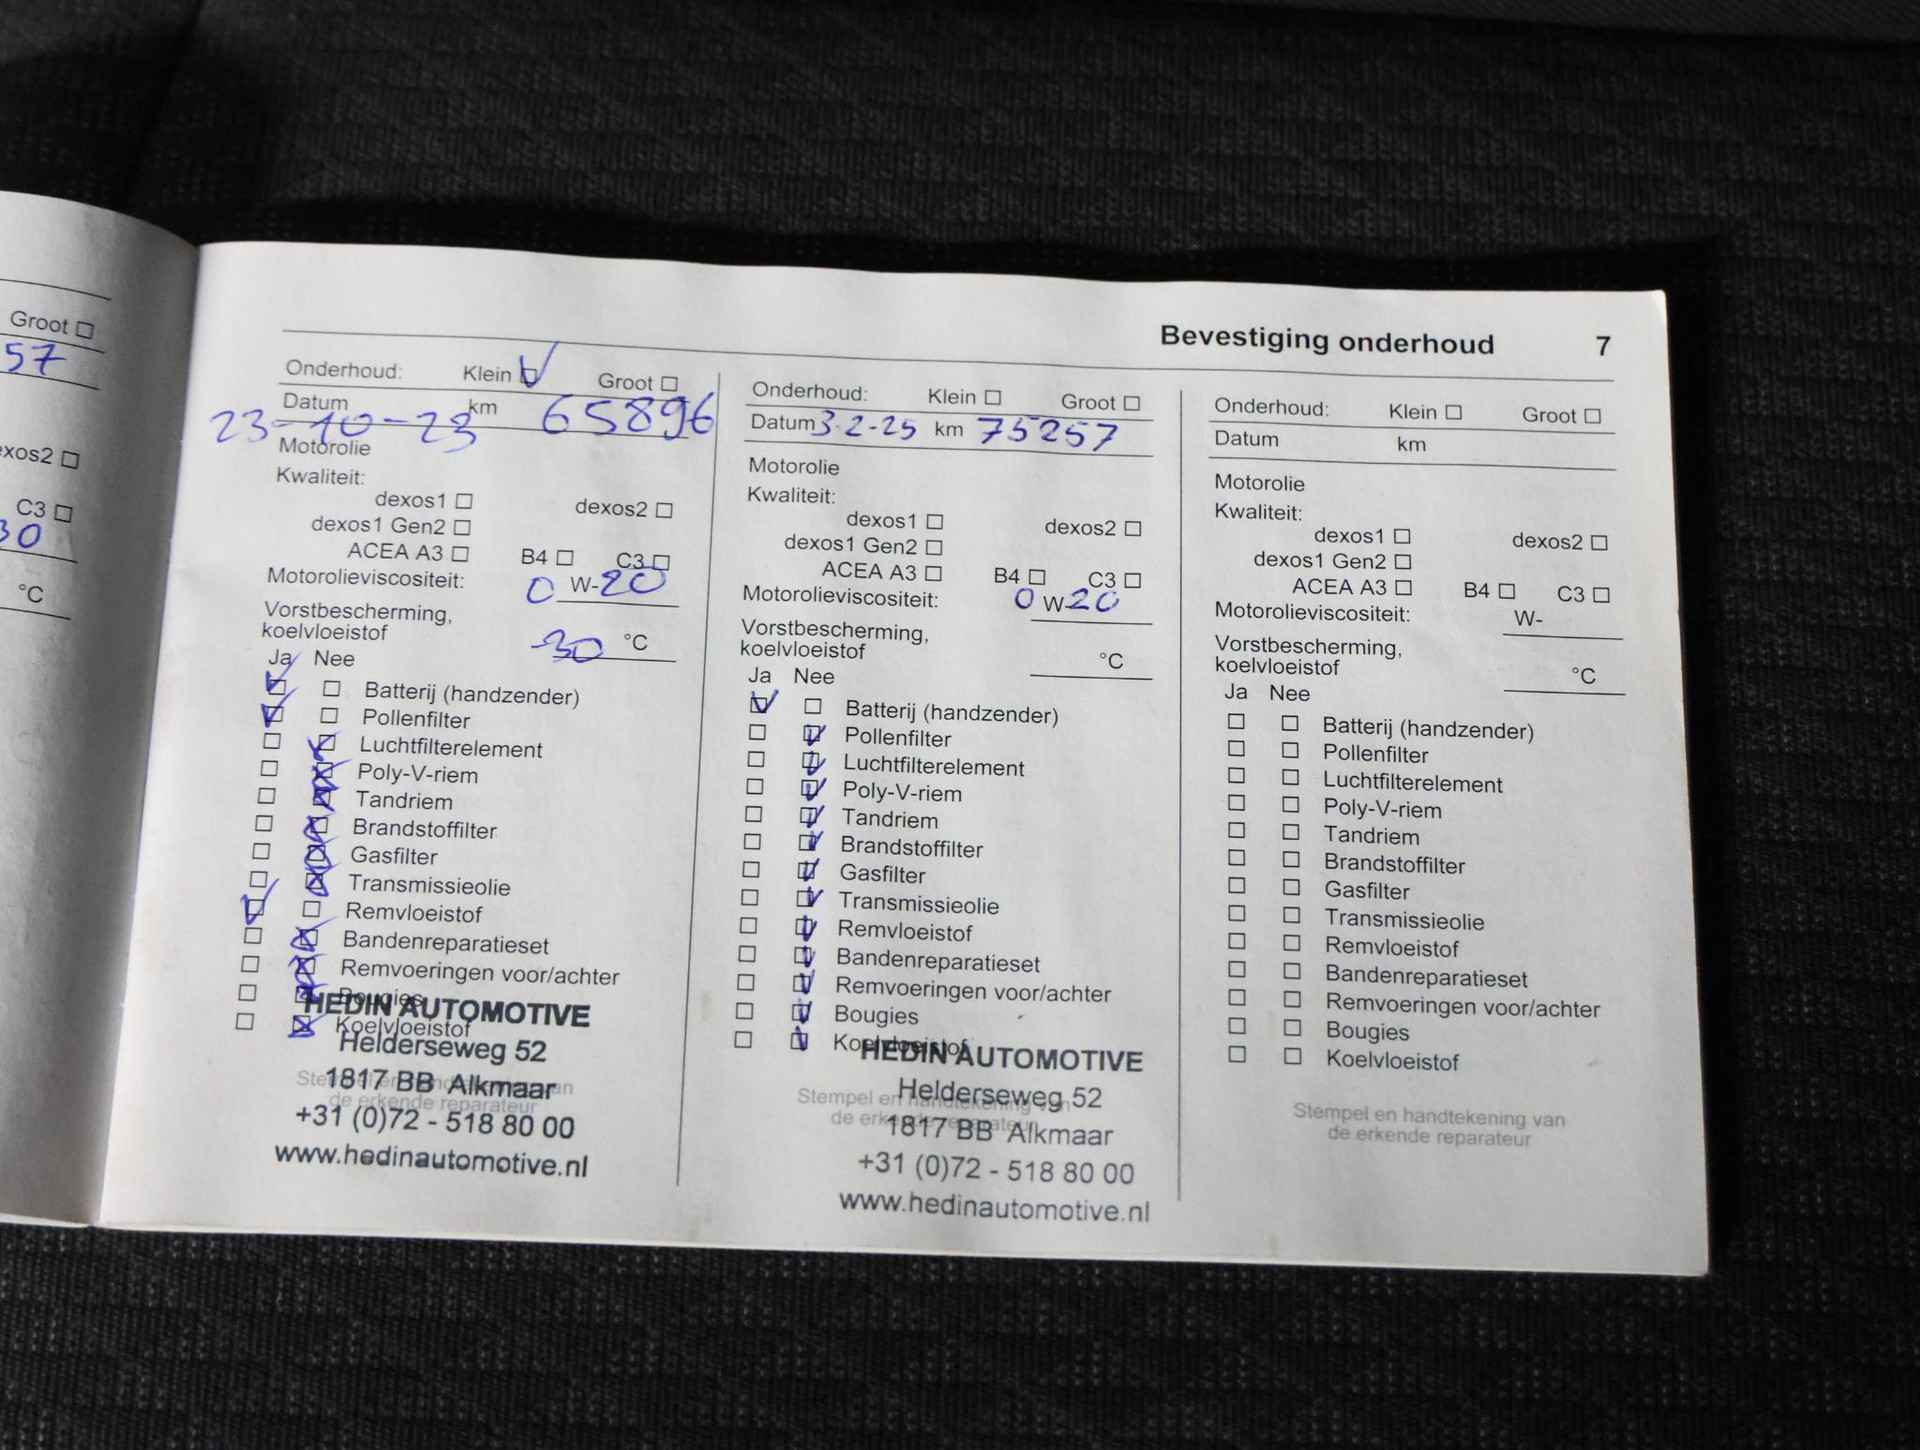 Groot
57
xos2
C3
30
°C
Bevestiging onderhoud 7
Onderhoud: Klein Groot
Datum km 65896
23-10-23
Motorolie
Kwaliteit:
dexos1 dexos2
dexos1 Gen2
ACEA A3 B4 C3
Motorolieviscositeit: 0 W-20
Vorstbescherming,
koelvloeistof -30 °C
Ja Nee
Batterij (handzender)
Pollenfilter
Luchtfilterelement
Poly-V-riem
Tandriem
Brandstoffilter
Gasfilter
Transmissieolie
Remvloeistof
Bandenreparatieset
Remvoeringen voor/achter
Bougies
Koelvloeistof
HEDIN AUTOMOTIVE
Helderseweg 52
1817 BB Alkmaar
+31 (0)72 - 518 80 00
www.hedinautomotive.nl
Stempel en handtekening van
de erkende reparateur
Onderhoud: Klein Groot
Datum 3-2-25 km 75257
Motorolie
Kwaliteit:
dexos1 dexos2
dexos1 Gen2
ACEA A3 B4 C3
Motorolieviscositeit: 0 W-20
Vorstbescherming,
koelvloeistof °C
Ja Nee
Batterij (handzender)
Pollenfilter
Luchtfilterelement
Poly-V-riem
Tandriem
Brandstoffilter
Gasfilter
Transmissieolie
Remvloeistof
Bandenreparatieset
Remvoeringen voor/achter
Bougies
Koelvloeistof
HEDIN AUTOMOTIVE
Helderseweg 52
1817 BB Alkmaar
+31 (0)72 - 518 80 00
www.hedinautomotive.nl
Stempel en handtekening van
de erkende reparateur
Onderhoud: Klein Groot
Datum km
Motorolie
Kwaliteit:
dexos1 dexos2
dexos1 Gen2
ACEA A3 B4 C3
Motorolieviscositeit: W-
Vorstbescherming,
koelvloeistof °C
Ja Nee
Batterij (handzender)
Pollenfilter
Luchtfilterelement
Poly-V-riem
Tandriem
Brandstoffilter
Gasfilter
Transmissieolie
Remvloeistof
Bandenreparatieset
Remvoeringen voor/achter
Bougies
Koelvloeistof
Stempel en handtekening van
de erkende reparateur